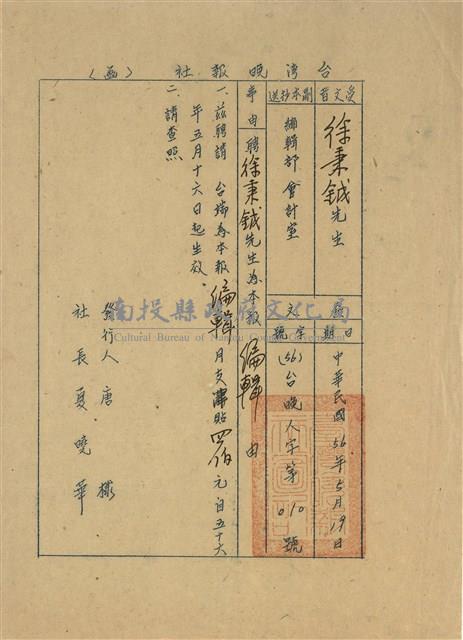 台灣晚報社(函)
受文者 徐秉鉞先生
副本抄送 編輯部 會計室
日期 中華民國56年5月19日
文字號 (56)台晚人字第010號
事由 聘徐秉鉞先生為本報編輯由
一、茲聘請 台端為本報編輯月支津貼四佰元自五十六
年五月十六日起生效。
二、請查照
發行人 唐
社長 夏曉華
南投縣政府文化局
Cultural Bureau of Nantou County Government